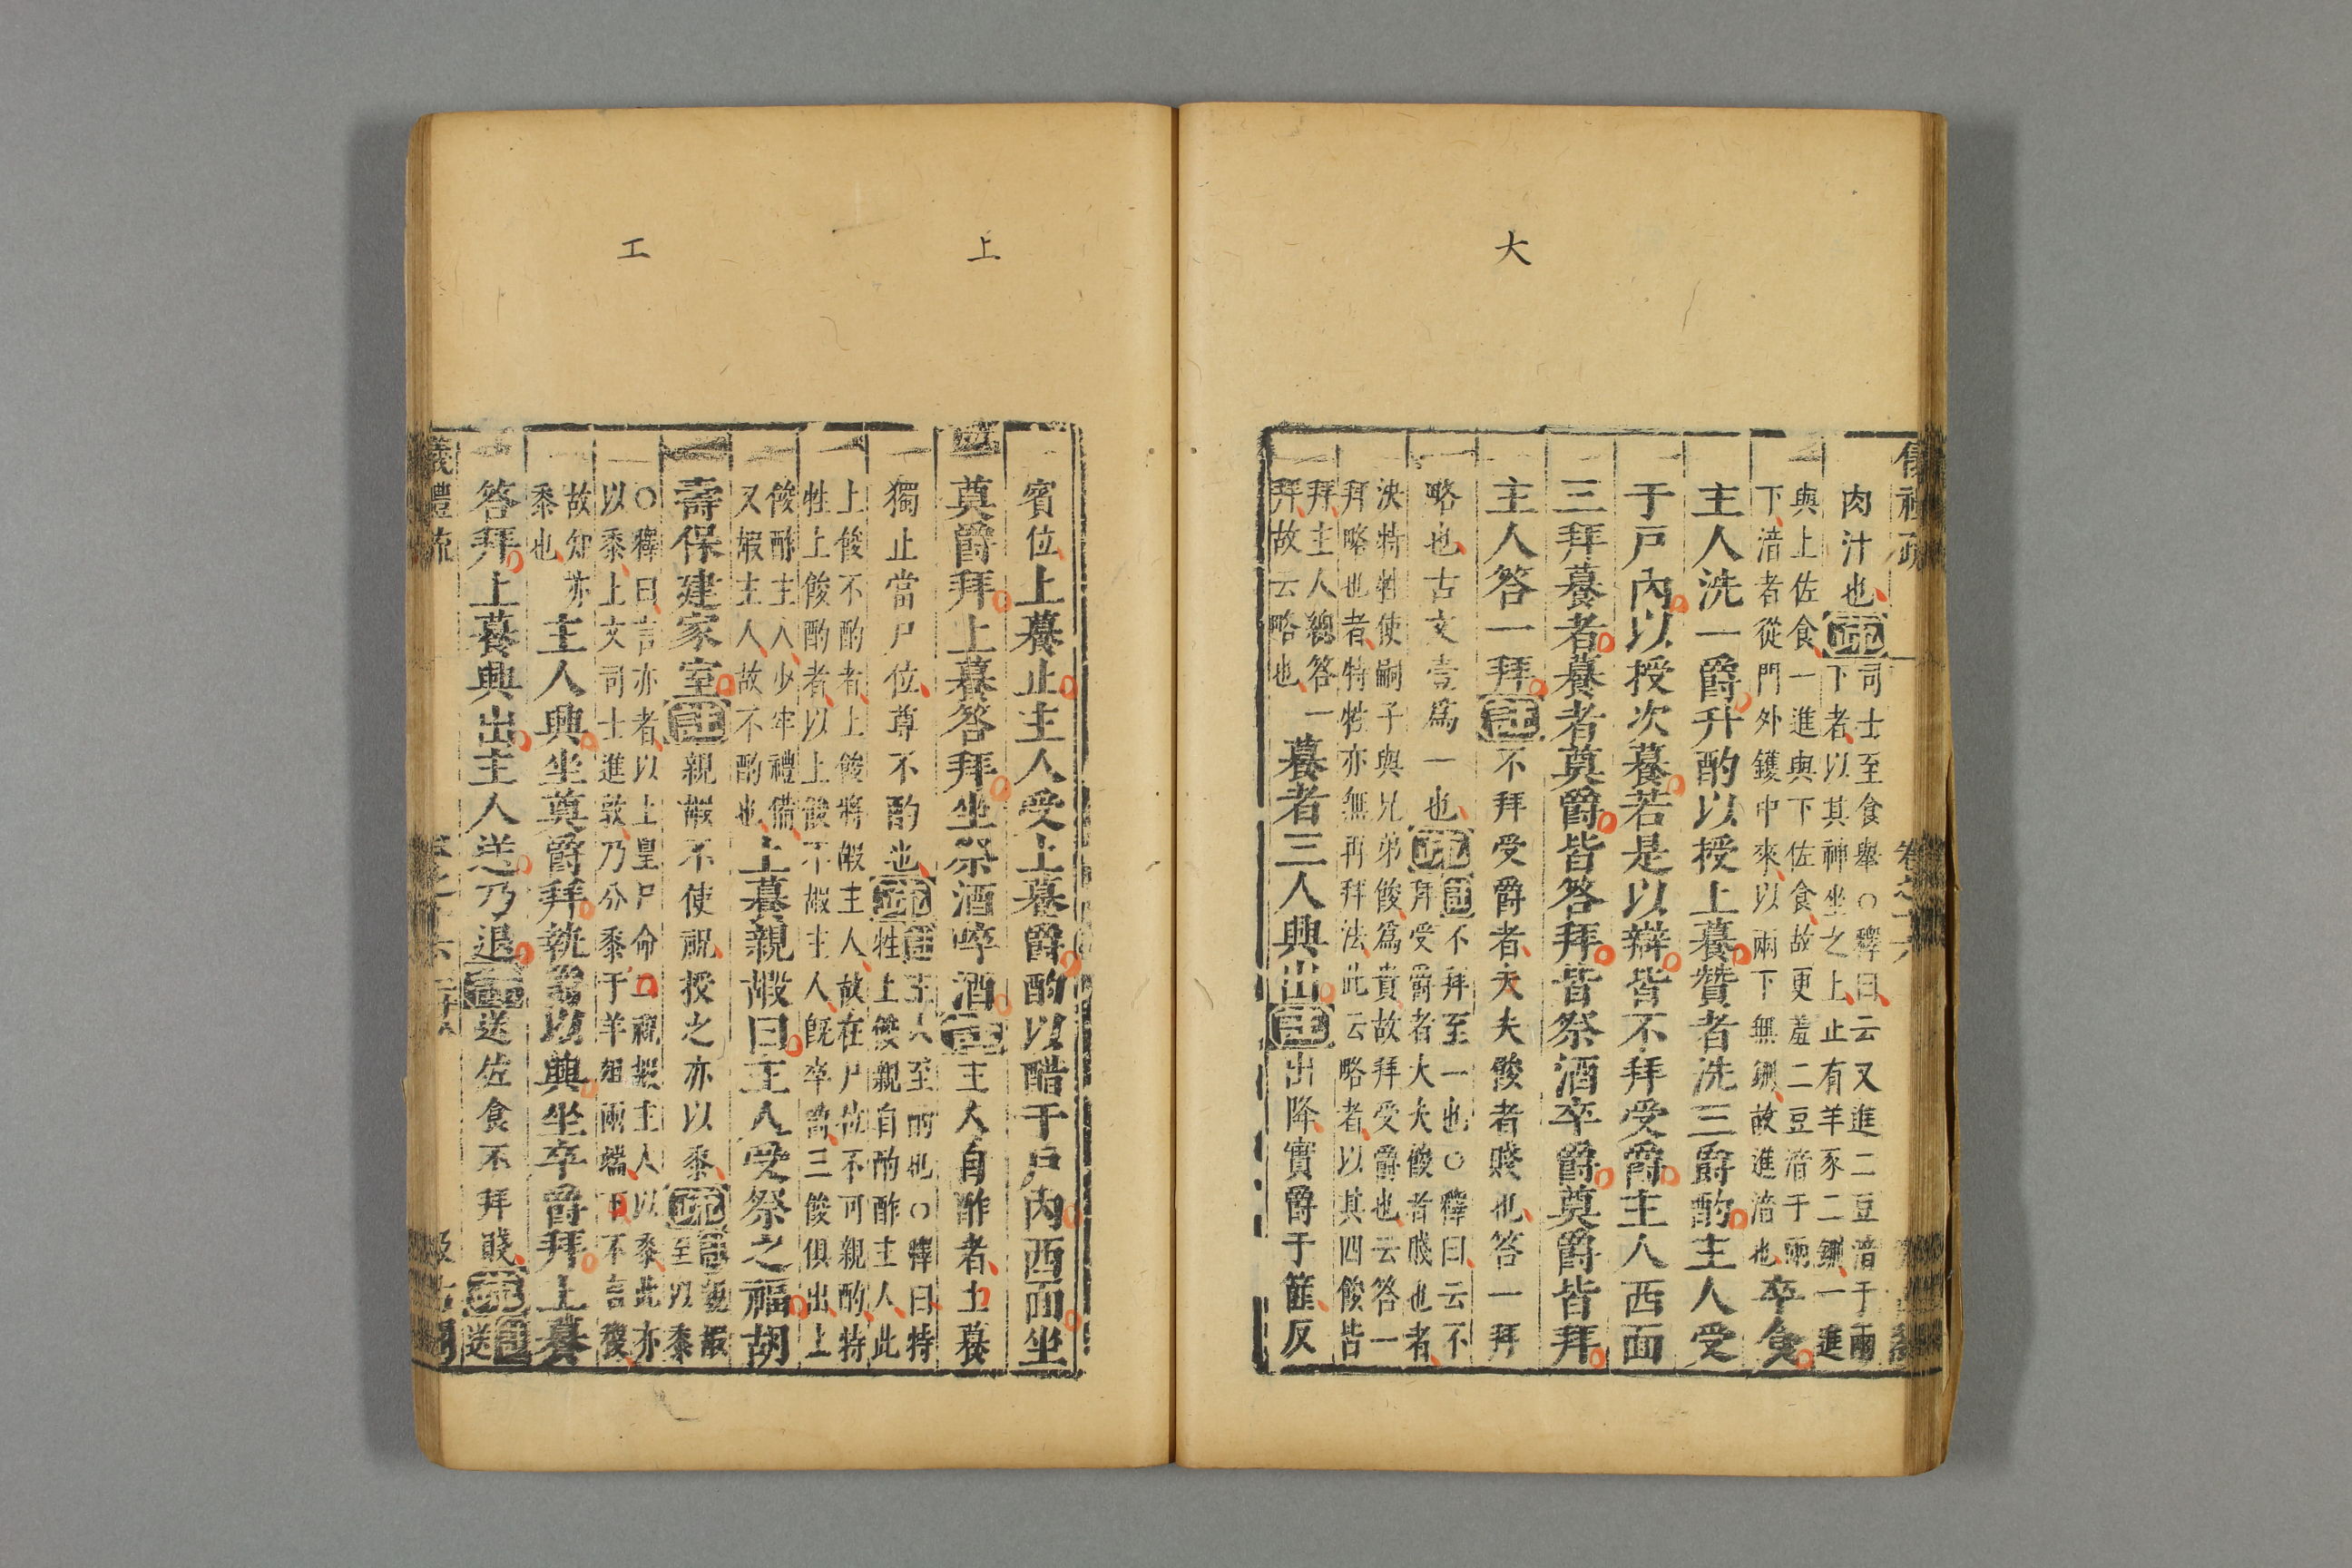 大
儀禮疏 卷之十六
肉汁也疏司士至食舉○釋曰云又進二豆湆于兩
下者以其神坐之上止有羊豕二鉶一進
與上佐食一進與下佐食故更羞二豆湆于兩
下湆者從門外鑊中來以兩下無鉶故進湆也卒食
主人洗一爵升酌以授上養贊者洗三爵酌主人受
于戶內以授次養若是以辯皆不拜受爵主人西面
三拜養者養者奠爵皆荅拜皆祭酒卒爵奠爵皆拜
主人荅一拜註不拜受爵者大夫餕者賤也荅一拜
略也古文壹爲一也疏註不拜至一也○釋曰云不
拜受爵者大夫餕者賤也者
決特牲使嗣子與兄弟餕爲貴故拜受爵也云荅一
拜略也者特牲亦無再拜法此云略者以其四餕皆
拜主人總荅一
拜故云略也養者三人興出註出降實爵于篚反
上
工
賓位上養止主人受上養爵酌以醋于戶內西面坐
奠爵拜上養荅拜坐祭酒啐酒註主人自酢者上養
獨止當尸位尊不酌也疏註主人至酌也○釋曰特
牲上餕親自酌酢主人此
上餕不酌者上餕將嘏主人故在尸位不可親酌特
牲上餕酌者以上餕不嘏主人旣卒爵三餕俱出上
餕酢主人少牢禮備
又嘏主人故不酌也上養親嘏曰主人受祭之福胡
壽保建家室註親嘏不使祝授之亦以黍疏註親嘏
至以黍
○釋曰言亦者以上皇尸命工祝嘏主人以黍此亦
以黍上文司士進敦乃分黍于羊俎兩端下不言餕
故知亦
黍也主人興坐奠爵拜執爵以興坐卒爵拜上養
荅拜上養興出主人送乃退註送佐食不拜賤疏註
送
儀禮疏